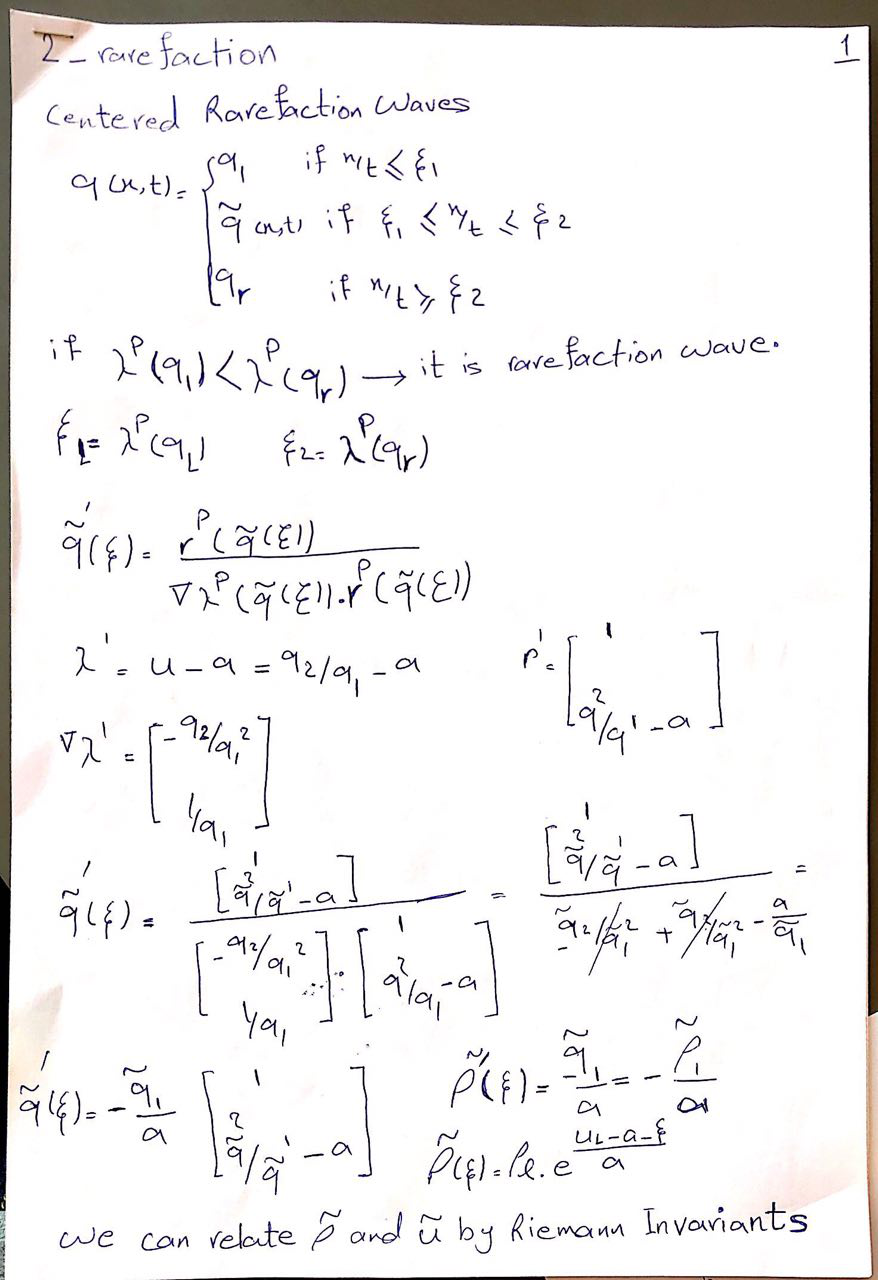 2 - rarefaction
1
Centered Rarefaction Waves
q(x,t) = { q_l if x/t ≤ ξ_1
q̃(x,t) if ξ_1 ≤ x/t ≤ ξ_2
q_r if x/t ≥ ξ_2
if λ^P(q_l) < λ^P(q_r) → it is rarefaction wave.
ξ_1 = λ^P(q_L) ξ_2 = λ^P(q_r)
q̃'(ξ) = r^P(q̃(ξ)) / ∇λ^P(q̃(ξ)).r^P(q̃(ξ))
λ^1 = u - a = q_2/q_1 - a r^1 = [1 ; q^2/q^1 - a]
∇λ^1 = [-q_2/q_1^2 ; 1/q_1]
q̃'(ξ) = [1 ; q̃^2/q̃^1 - a] / [-q_2/q_1^2 ; 1/q_1] · [1 ; q^2/q_1 - a] = [1 ; q̃^2/q̃^1 - a] / -q̃_2/q̃_1^2 + q̃_2/q̃_1^2 - a/q̃_1 =
q̃'(ξ) = - q̃_1/a [1 ; q̃^2/q̃^1 - a] ρ̃'(ξ) = -q̃_1/a = - ρ̃_1/a
ρ̃(ξ) = ρ_l . e^((u_L - a - ξ)/a)
we can relate ρ̃ and ũ by Riemann Invariants